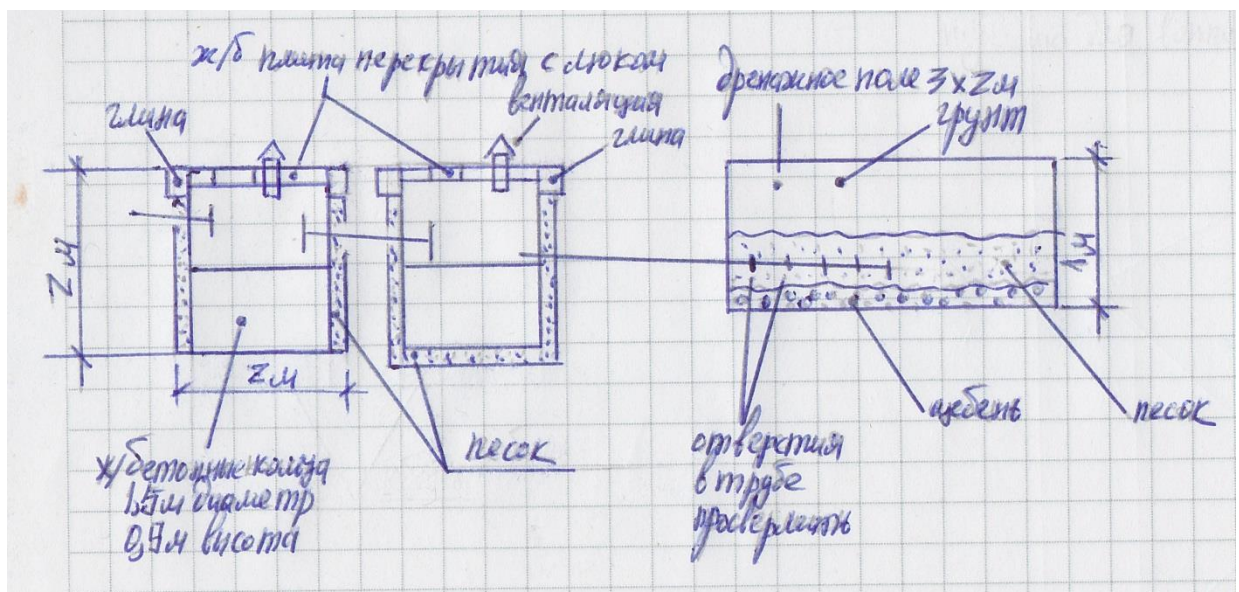 ж/б плита перекрытия с люком
вентиляция
глина
глина
дренажное поле 3х2м
грунт
2м
2м
1м
ж/бетонные кольца
1,5м диаметр
0,9м высота
песок
отверстия
в трубе
просверлить
щебень
песок